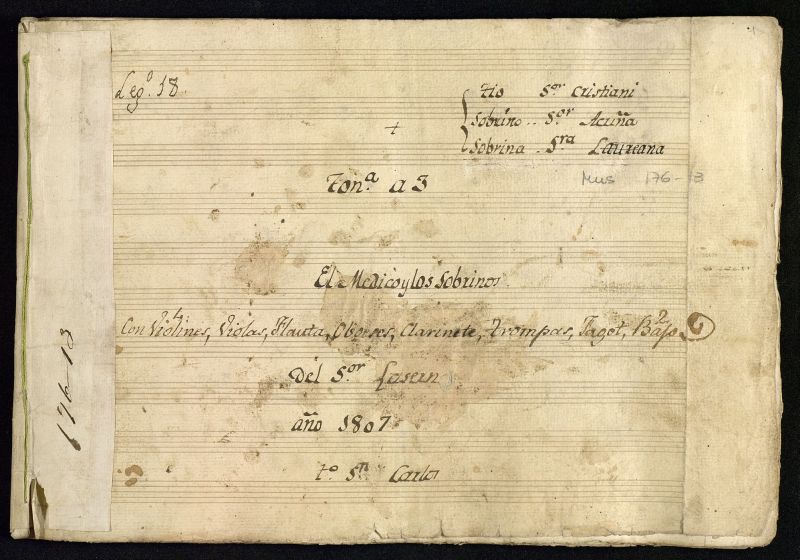 Leg.º 18
Tio Sor Cristiani
+
Sobrino .. Sor Acuña
Sobrina . Sra Laureana
Ton.a a 3
Mus 176-13
El Medico y los Sobrinos.
4 2
Con Violines, Violas, Flauta, Oboeses, Clarinete, Trompas, Fagot, Bajo
Del Sor Lasern
año 1807
to Sn Carlos
176-13